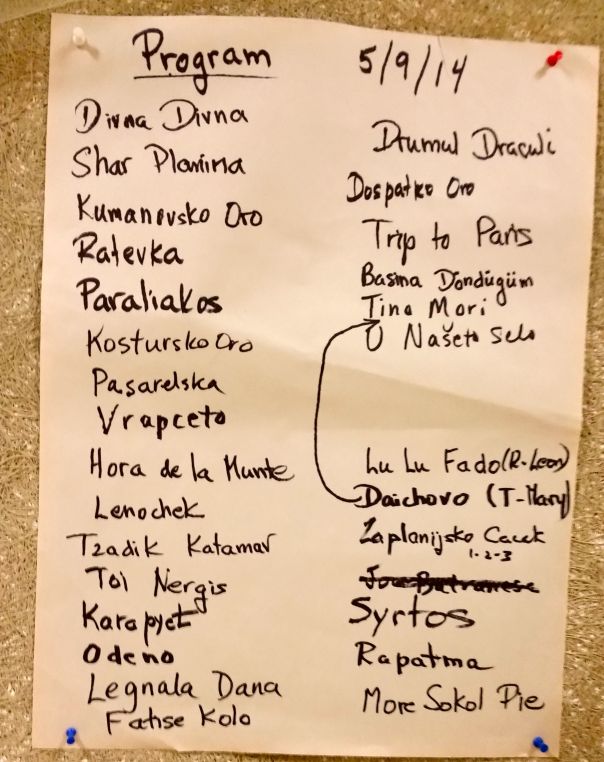 Program 5/9/14
Divna Divna
Shar Planina
Kumanovsko Oro
Ratevka
Paraliakos
Kostursko Oro
Pasarelska
Vrapceto
Hora de la Munte
Lenochek
Tzadik Katamar
Toi Nergis
Karapyet
Odeno
Legnala Dana
Fatise Kolo
Drumul Dracului
Dospatko Oro
Trip to Paris
Basina Döndügüm
Tino Mori
U Našeto Selo
Lu Lu Fado (R-Leon)
Daichovo (T-Mary)
Zaplanijsko Cacek
1-2-3
Syrtos
Rapatma
More Sokol Pie